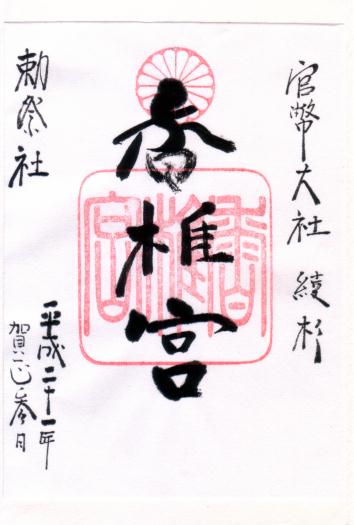 官幣大社 綾杉
香椎宮
香椎宮
勅祭社
平成二十一年
賀正参日